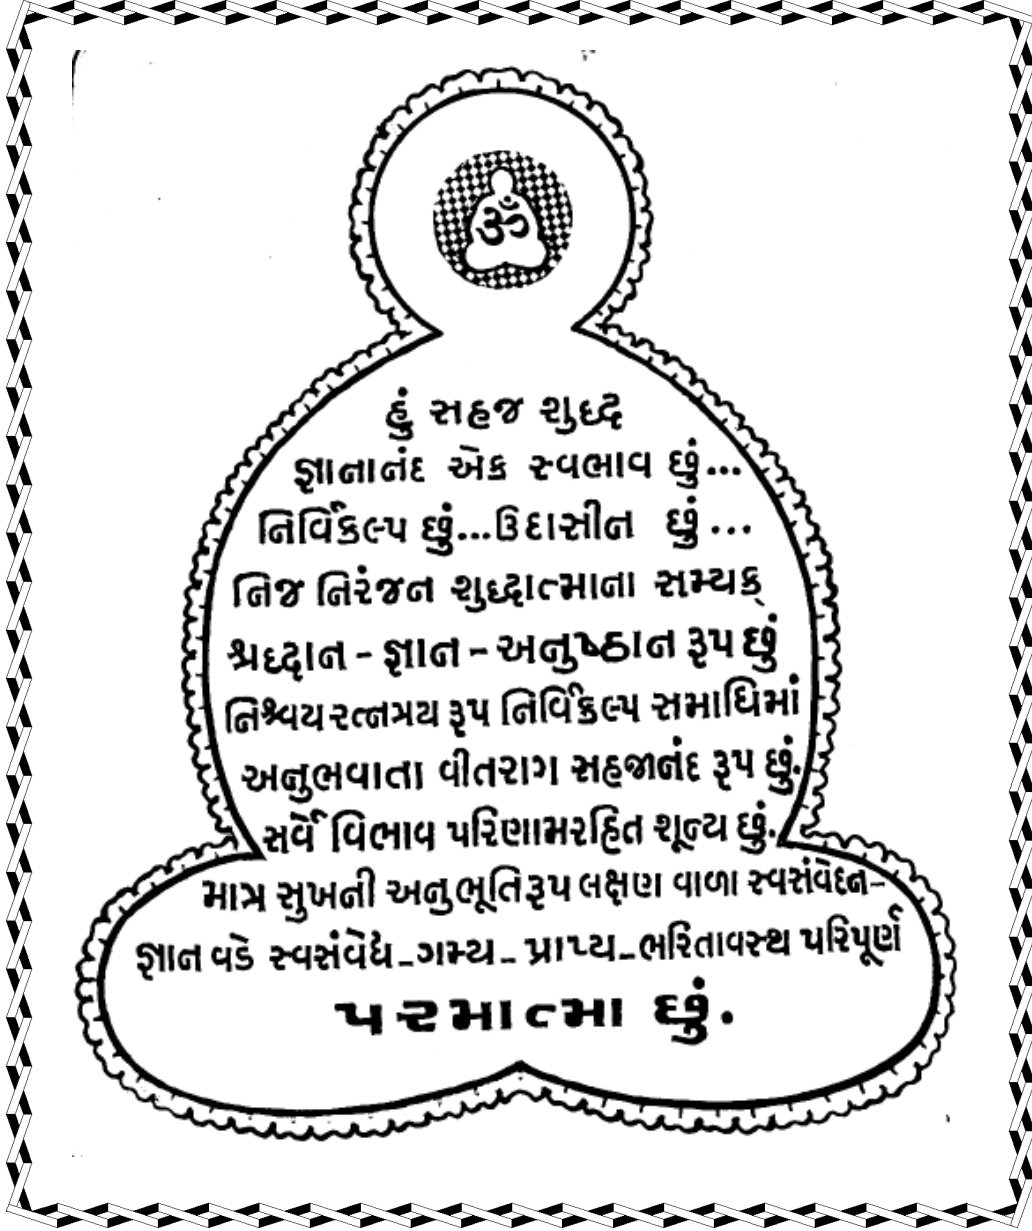 ૐ
હું સહજ શુદ્ધ
જ્ઞાનાનંદ એક સ્વભાવ છું...
નિર્વિકલ્પ છું...ઉદાસીન છું...
નિજ નિરંજન શુદ્ધાત્માના સમ્યક્
શ્રદ્ધાન - જ્ઞાન - અનુષ્ઠાન રૂપ છું
નિશ્ચયરત્નત્રય રૂપ નિર્વિકલ્પ સમાધિમાં
અનુભવાતા વીતરાગ સહજાનંદ રૂપ છું.
સર્વે વિભાવ પરિણામરહિત શૂન્ય છું.
માત્ર સુખની અનુભૂતિરૂપ લક્ષણ વાળા સ્વસંવેદન-
જ્ઞાન વડે સ્વસંવેદ્ય-ગમ્ય- પ્રાપ્ય-ભરિતાવસ્થ પરિપૂર્ણ
પરમાત્મા છું.